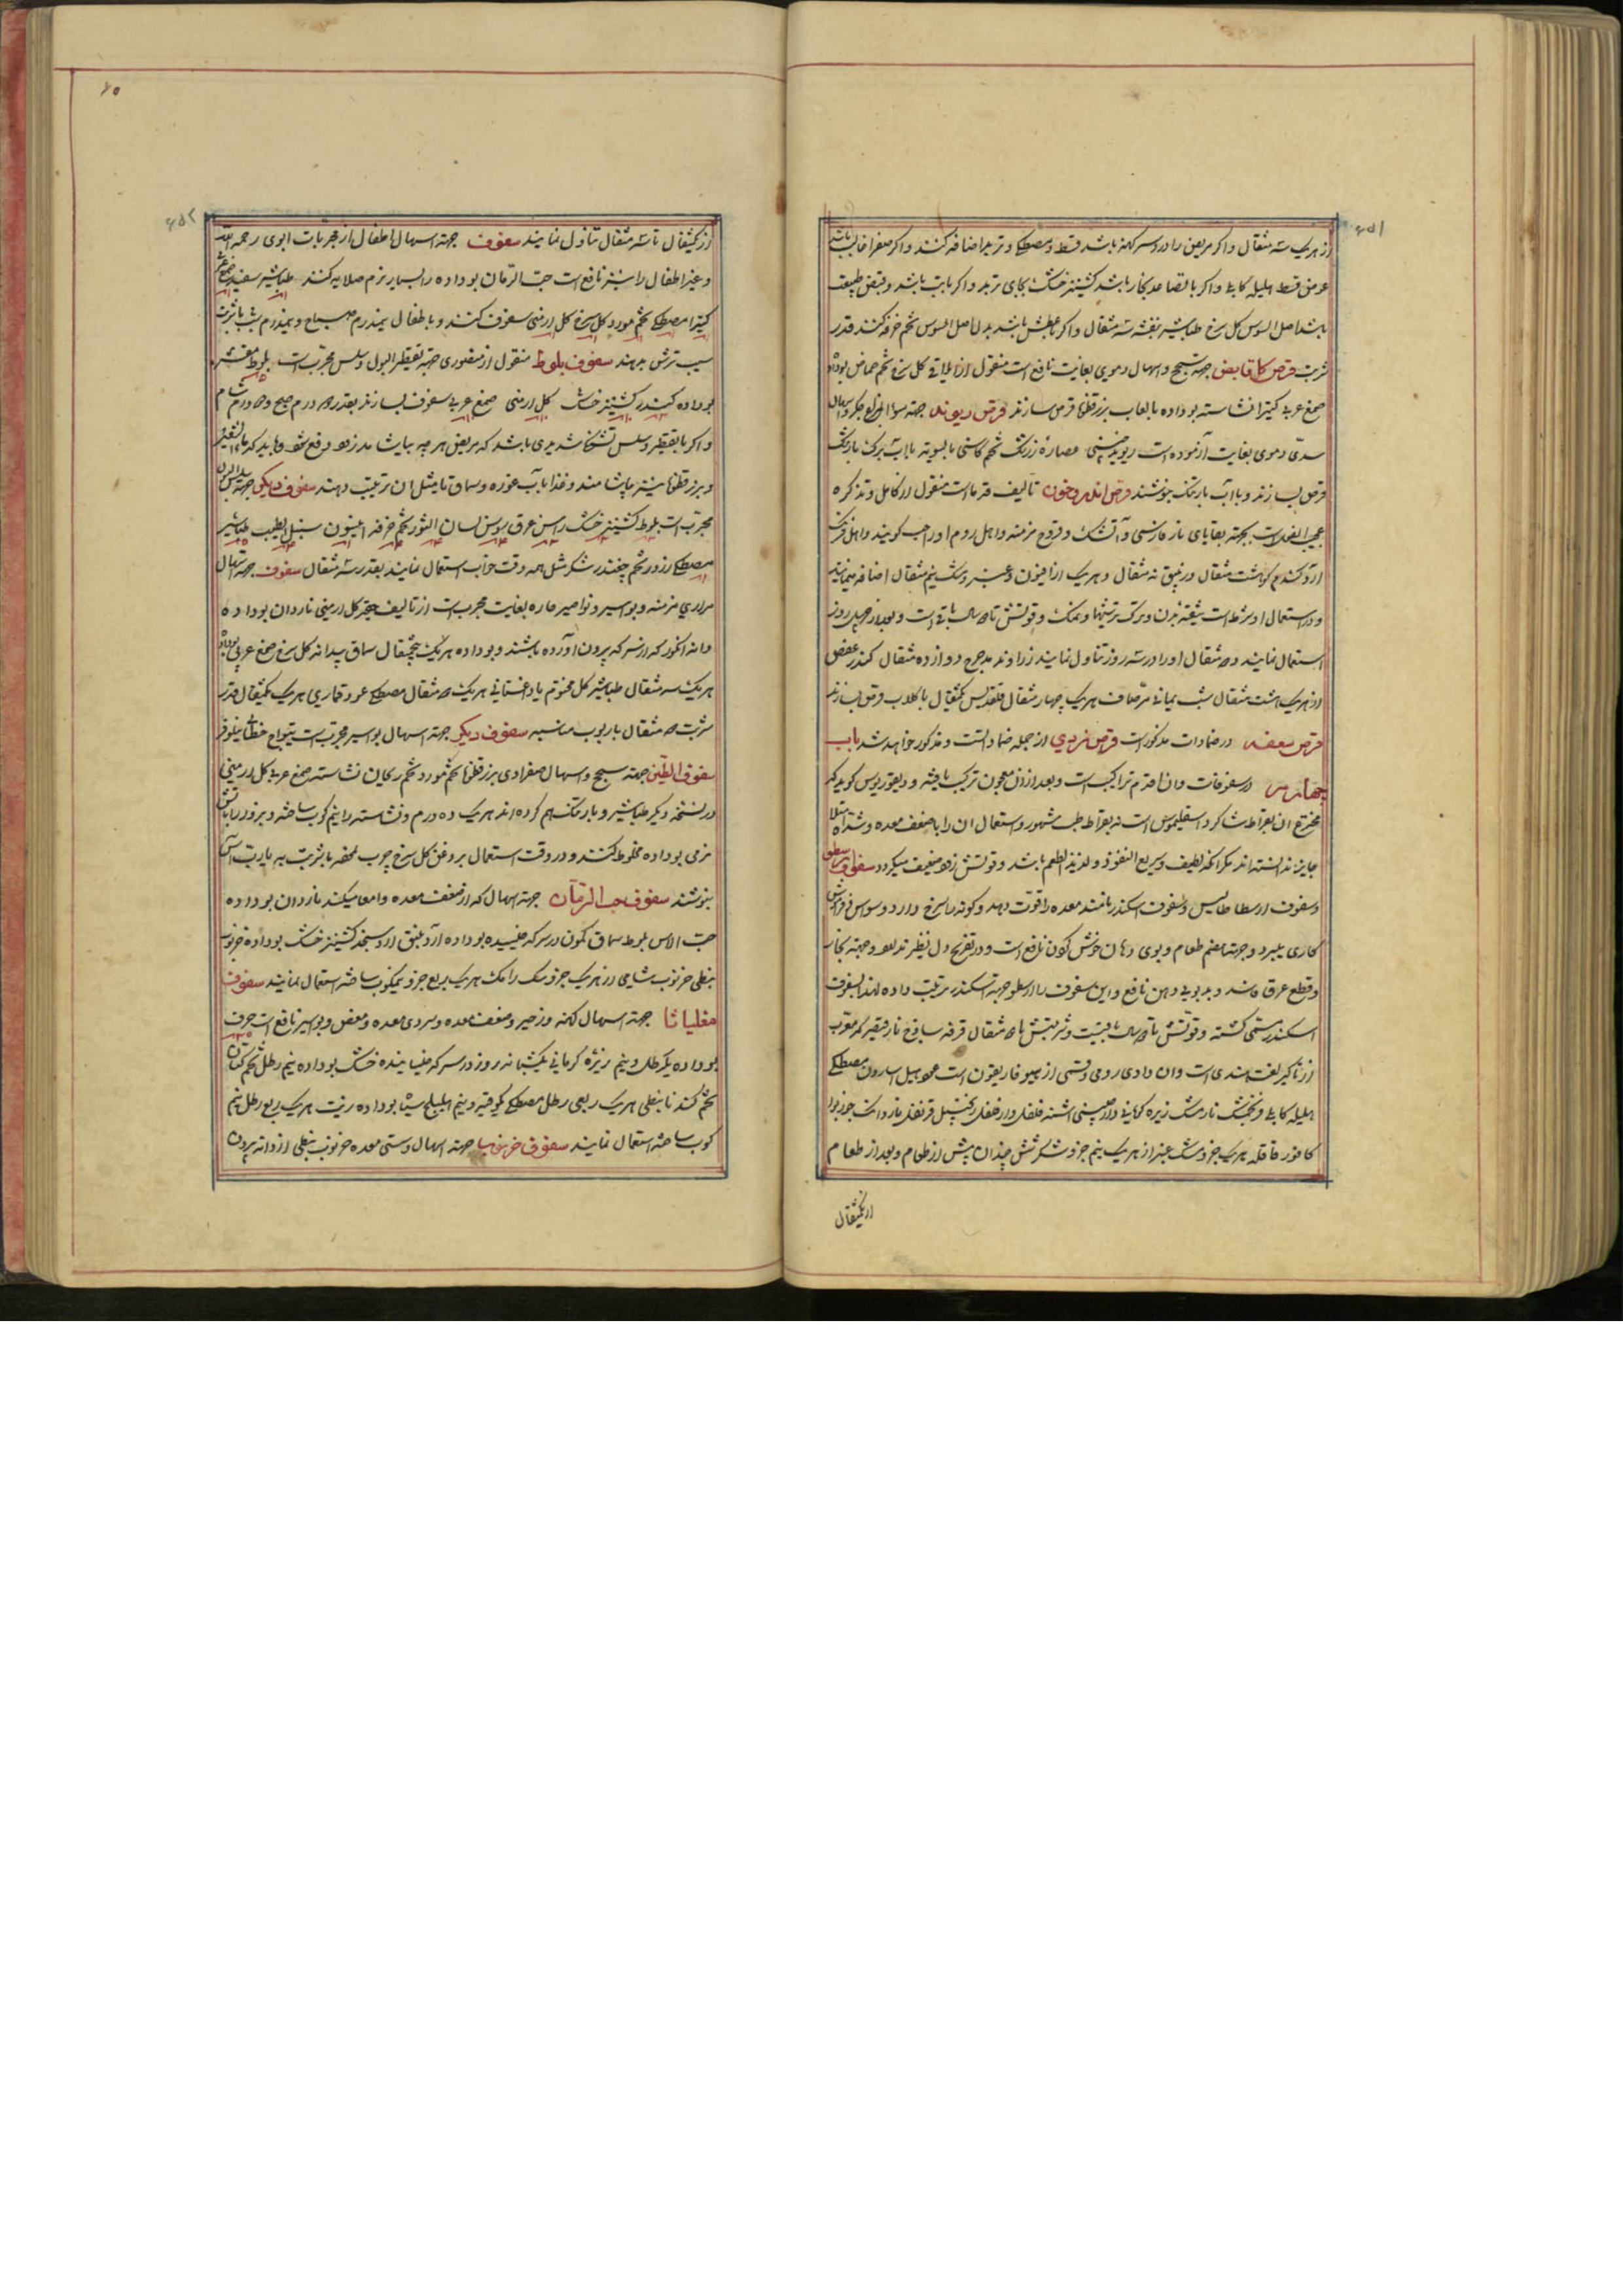 از هریک سه مثقال و اگر مریض را درد سر کهنه باشد قسط و مصطکی و تربد اضافه کنند و اگر صفرا غالب باشد
عوض قسط هلیله کابلی و اگر با تصاعد بخار باشد کشنیز خشک بجای تربد و اگر باتب باشد و قبض طبیعت
باشد اصل السوس کل سرخ طباشیر بنفشه سه مثقال و اگر با عطش باشد بدل اصل السوس تخم خرفه کنند قدر
شربت قرص قابض جهة سحج و اسهال دموی بغایت نافع است منقول از کل سرخ تخم حماض بوداده
صمغ عربی کتیرا نشاسته بوداده با لعاب بزرقطونا قرص سازند قرص ریوند جهة سوء المزاج جکر و اسهال
سدی دموی بغایت آزموده است ریوند چینی عصاره زرشک تخم کاسنی بالسویه باآب برک بارتنک
قرص بسازند و باآب بارتنک بنوشند قرص اندروخون تالیف قدما است منقول از کامل و تذکره
بجهة بقایای نار فارسی و آتشک و قروح مزمنه و اهل روم او را حب کویند و اهل فرنک
آرد کندم هشت مثقال و زیبق نه مثقال و هریک از افیون و عنبر و مشک نیم مثقال اضافه مینمایند
و در استعمال او شرط است تنقیه بدن و ترک ترشیها و نمک و قوتش تا دو سال باقی است و بعد از چهل روز
استعمال نمایند و ده مثقال او را در سه روز تناول نمایند زراوند مدحرج دوازده مثقال کندر عفص
از هریک هشت مثقال شب یمانی مر صاف هریک چهار مثقال قلقدیس یکمثقال با کلاب قرص بسازند
قرص سعفه در ضمادات مذکور است قرص نردی از جمله ضمادات و مذکور خواهد شد باب
چهارم در سفوفات و ان اقدم تراکیب است و بعد از ان معجون ترکیب یافته و دیقوریدوس کوید که
مخترع ان بقراط شاکرد اسقلیموس است نه بقراط طب مشهور و استعمال ان را با ضعف معده و شدت امتلا
جایز ندانسته اند مکر آنکه لطیف و سریع النفوذ و لذیذ الطعم باشد و قوتش زود ضعیف میکردد سفوف ارسطو
و سفوف ارسطاطالیس و سفوف اسکندر نامند معده را قوت دهد و کونه را سرخ دارد و سوس
کاری ببرد و جهة هضم طعام و بوی دهان خوش کردن نافع است و در تفریح دل نظیر ندارد و جهة بخار
و قطع عرق فاسد و بدبویی دهن نافع و این سفوف را ارسطو جهة اسکندر ترتیب داده لهذا بسفوف
اسکندر مسمی کشته و قوتش تا دو سال باقیست و شربتش تا دو مثقال قرفه ساذج نارقیصر که معرب
از ناکیسر لغت هندی است و ان دادی رومی و قسمی از هیوفاریقون است هیل اسارون مصطکی
هلیله کابلی فرنجمشک نارمشک زیره کرمانی دارچینی اشنه فلفل دارفلفل زنجبیل قرنفل ناردانک جوزبوا
کافور قاقله هریک جزو مشک عنبر از هریک نیم جزو شکر شش چندان پیش از طعام و بعد از طعام
از یکمثقال
از یکمثقال تا سه مثقال تناول نمایند سفوف جهة اسهال اطفال از مجربات ابوی رحمه الله
و غیر اطفال را نیز نافع است حب الرمان بوداده را بسیار نرم صلایه کنند طباشیر سفید صمغ عربی
کتیرا مصطکی تخم مورد کل سرخ کل ارمنی سفوف کنند و باطفال نیمدرم صباح و نیمدرم شب با شربت
سیب ترش بدهند سفوف بلوط منقول از منصوری جهة تقطیر البول و سلس مجرب است بلوط مقشر
بوداده کندر کشنیز خشک کل ارمنی صمغ عربی سفوف بسازند بقدر ده درم صبح و ده درم شام
و اکر با تقطیر و سلس تشنکی شدیدی باشد که مریض هرچه بیاشامد زود دفع شود باید که
و بزرقطونا بیاشامند و غذا باآب غوره و سماق یا مثل ان ترتیب دهند سفوف دیکر جهة سلس البول
مجربست بلوط کشنیز خشک راسن عرق سوس لسان الثور تخم خرفه افیون سنبل الطیب طباشیر
مصطکی زرورد تخم چغندر شکر مثل همه وقت خواب استعمال نمایند بقدر سه مثقال سفوف جهة اسهال
مراری مزمنه و بواسیر و نواصیر حاره بغایت مجربست از تالیف حقیر کل ارمنی ناردان بوداده
و دانه انکور که از سرکه بیرون آورده باشند و بوداده هریک پنجمثقال سماق بیدانه کل سرخ صمغ عربی بوداده
هریک سه مثقال طباشیر کل مختوم یا داغستانی هریک ده مثقال مصطکی عود قماری هریک یکمثقال قدر
شربت ده مثقال با ربوب مناسبه سفوف دیکر جهة اسهال بواسیر مجربست
سفوف الطین جهة سحج و اسهال صفراوی بزرقطونا تخم مورد تخم ریحان نشاسته صمغ عربی کل ارمنی
در نسخه دیکر طباشیر و بارتنک هم کرده اند هریک ده درم و نشاسته را نیم کوب ساخته و بزور را باآتش
نرمی بوداده مخلوط کنند و در وقت استعمال بروغن کل سرخ چرب نموده با شربت به یا رب آس
بنوشند سفوف حب الرمان جهة اسهال که از ضعف معده و امعا میکند ناردان بوداده
حب الاس بلوط سماق کمون در سرکه خیسیده بوداده آرد نبق آرد سنجد کشنیز خشک بوداده خرنوب
نبطی خرنوب شامی از هریک جزو سک رامک هریک ربع جزو نیمکوب ساخته استعمال نمایند سفوف
مقلیاثا جهة اسهال کهنه و زحیر و ضعف معده و سردی معده و مغص و بواسیر نافع است حرف
بوداده یکرطل و نیم زیره کرمانی یکشبانه روز در سرکه خیسانیده خشک بوداده نیم رطل تخم کتان
تخم کندنا نبطی هریک ربعی رطل مصطکی یکوقیه و نیم هلیله سیاه بوداده بزیت هریک ربع رطل نیم
کوب ساخته استعمال نمایند سفوف خرنوب جهة اسهال و سستی معده خرنوب نبطی از دانه بیرون